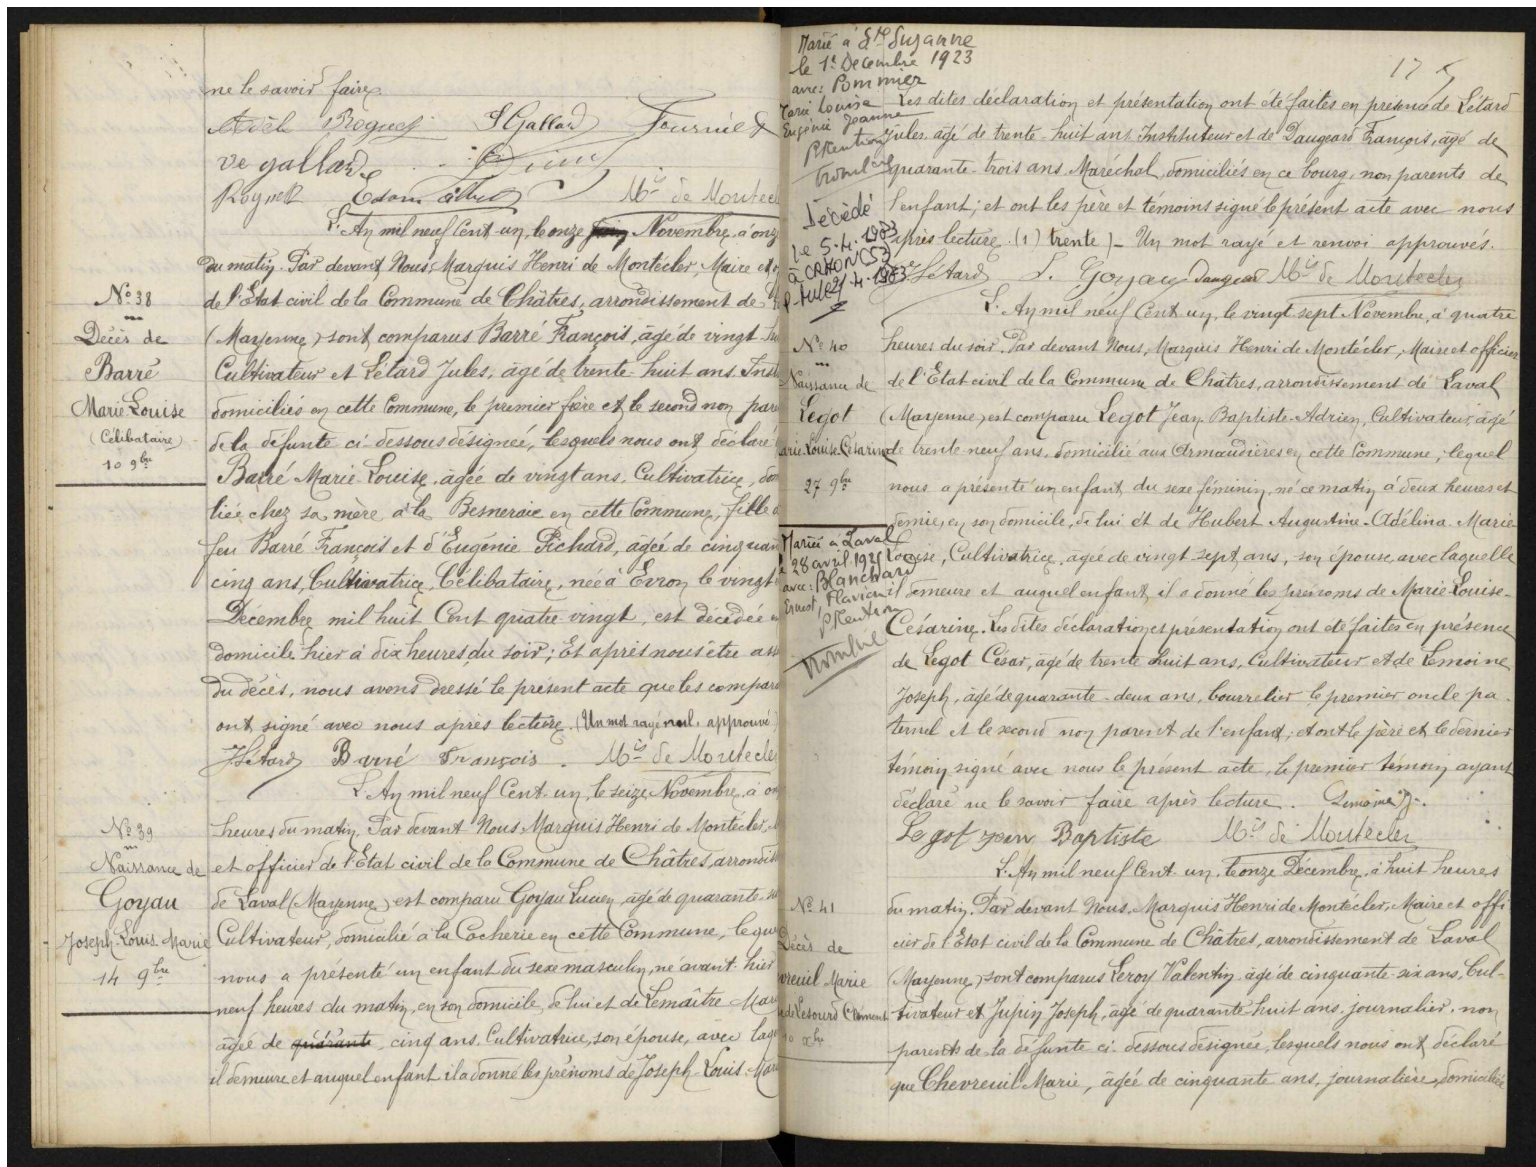 ne le savoir faire.
S Gallard Fournier
Ve gallard
M<sup>is</sup> de Montecl
L'An mil neuf Cent-un, le onze Novembre, à onz
du matin. Par devant Nous, Marquis Henri de Montécler, Maire et
de l'Etat civil de la Commune de Châtres, arrondissement de
(Mayenne) sont comparus Barré François, âgé de vingt-
Cultivateur et Létard Jules, âgé de trente-huit ans, Inst
domiciliés en cette Commune, le premier frère et le second non pare
de la défunte ci-dessous désignée, lesquels nous ont déclaré
Barré Marie-Louise, âgée de vingt ans, Cultivatrice, dom
liée chez sa mère à la Besneraie en cette Commune, fille d
feu Barré François et d'Eugénie Pichard, âgée de cinquan
cinq ans, Cultivatrice, Célibataire, née à Evron le vingt
Décembre mil huit Cent quatre vingt, est décédée en
domicile hier à dix heures du soir; Et après nous être ass
du décès, nous avons dressé le présent acte que les compar
ont signé avec nous après lecture. (Un mot rayé nul, approuvé)
JLétard Barré François. M<sup>is</sup> de Montecler
L'An mil neuf Cent-un, le seize Novembre, à on
heures du matin. Par devant Nous Marquis Henri de Montécler, M
et officier de l'Etat civil de la Commune de Châtres, arrondiss
de Laval (Mayenne) est comparu Goyau Lucien, âgé de quarante-
Cultivateur, domicilié à la Cocherie en cette Commune, leque
nous a présenté un enfant du sexe masculin, né avant-hier
neuf heures du matin, en son domicile, de lui et de Lemaître Mar
âgée de quarante cinq ans, Cultivatrice, son épouse, avec laqu
il demeure et auquel enfant il a donné les prénoms de Joseph-Louis-Mar
N° 38
Décès de
Barré
Marie-Louise
(Célibataire)
10 9<sup>bre</sup>
N° 39
Naissance de
Goyau
Joseph-Louis-Marie
14 9<sup>bre</sup>
17
Marié à S<sup>te</sup> Suzanne
le 1<sup>er</sup> Décembre 1923
avec: Pommier
Marie Louise
Eugénie Jeanne
Mention
Décédé
le 5.4.1983
à CRAON (53)
Les dites déclaration et présentation ont été faites en présence de Létard
Jules, âgé de trente-huit ans, Instituteur et de Daugeard François, âgé de
quarante-trois ans, Maréchal, domiciliés en ce bourg, non parents de
l'enfant; et ont les père et témoins signé le présent acte avec nous
après lecture. (1) trente)_ Un mot rayé et renvoi approuvés.
Létard L. Goyau Daugeard M<sup>is</sup> de Montecler
L'An mil neuf Cent-un, le vingt sept Novembre, à quatre
heures du soir. Par devant Nous, Marquis Henri de Montécler, Maire et officier
de l'Etat civil de la Commune de Châtres, arrondissement de Laval
(Mayenne) est comparu Legot Jean Baptiste-Adrien, Cultivateur, âgé
de trente neuf ans, domicilié aux Armaudières en cette Commune, lequel
nous a présenté un enfant du sexe féminin, né ce matin à deux heures et
demie, en son domicile, de lui et de Hubert Augustine-Adélina-Marie-
Louise, Cultivatrice, âgée de vingt sept ans, son épouse, avec laquelle
il demeure et auquel enfant il a donné les prénoms de Marie-Louise-
Césarine. Les dites déclaration et présentation ont été faites en présence
de Legot César, âgé de trente huit ans, Cultivateur et de Lemoine
Joseph, âgé de quarante-deux ans, bourrelier le premier oncle pa-
ternel et le second non parent de l'enfant; et ont le père et le dernier
témoin signé avec nous le présent acte, le premier témoin ayant
déclaré ne le savoir faire après lecture. Lemoine J.
Legot jean Baptiste M<sup>is</sup> de Montecler
L'An mil neuf Cent-un, le onze Décembre, à huit heures
du matin. Par devant Nous, Marquis Henri de Montécler, Maire et offi
cier de l'Etat civil de la Commune de Châtres, arrondissement de Laval
(Mayenne) sont comparus Leroy Valentin, âgé de cinquante-six ans, Cul-
tivateur et Jupin Joseph, âgé de quarante-huit ans, journalier, non
parents de la défunte ci-dessous désignée, lesquels nous ont déclaré
que Chevreuil Marie, âgée de cinquante ans, journalière, domiciliée
N° 40
Naissance de
Legot
arie-Louise-Césarine
27 9<sup>bre</sup>
Mariée à Laval
28 avril 1925
avec: Blanchard
Ernest, Flavien
Mention
N° 41
Décès de
vreuil Marie
Lesourd Clément
10 X<sup>bre</sup>